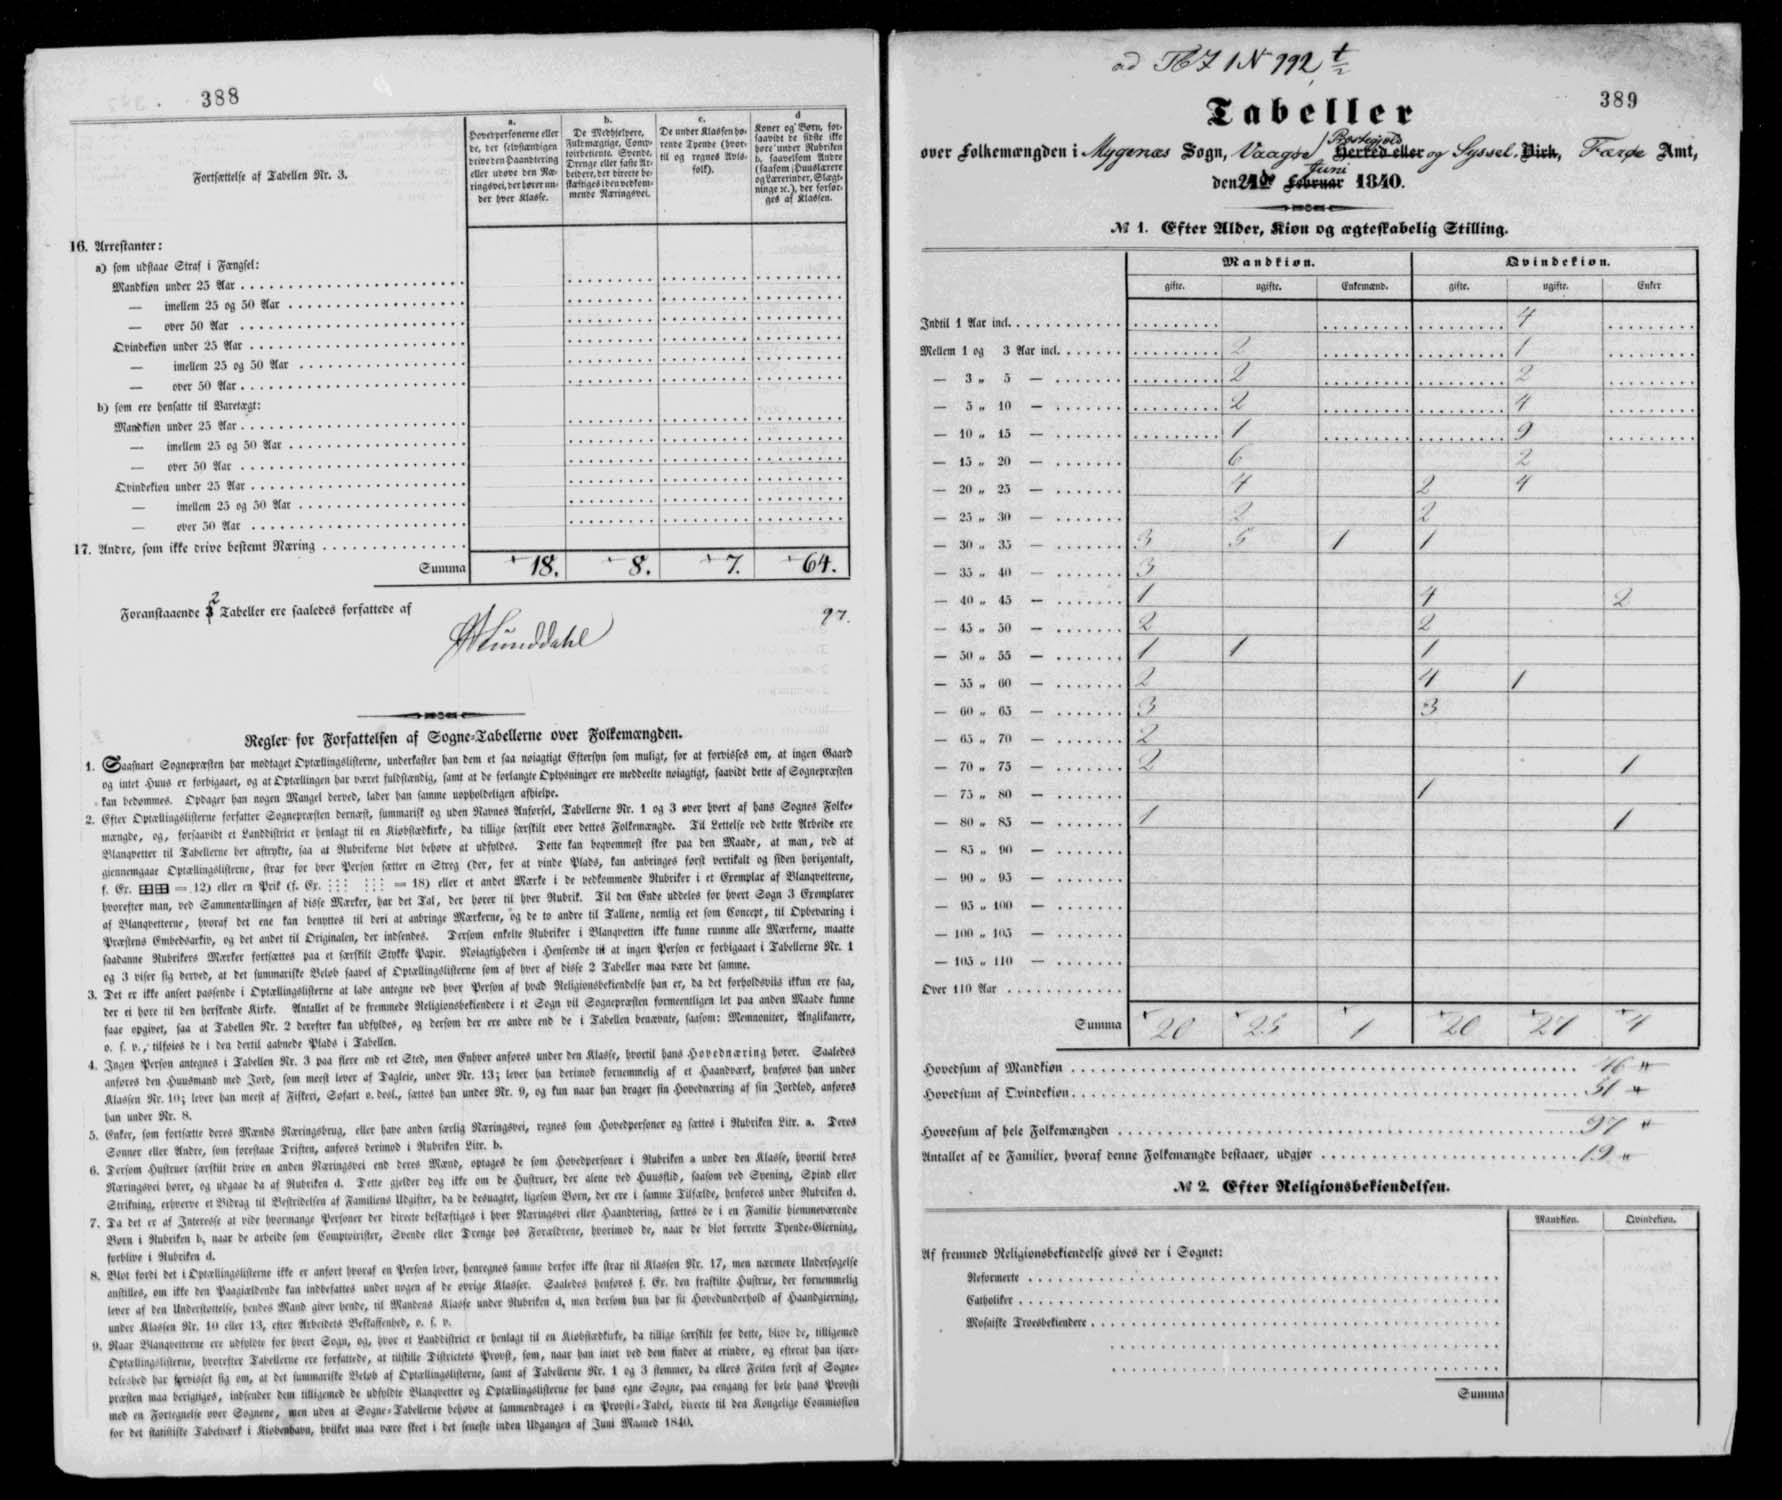 388
Fortsættelse af Tabellen Nr. 3.
a.
Hovedpersonerne eller
de, der selvstændigen
drive den Haandtering
eller udøve den Næ-
ringsvei, der hører un-
der hver Klasse.
b.
De Medhjelpere,
Fuldmægtige, Comp-
toirbetiente, Svende,
Drenge eller faste Ar-
beidere, der directe be-
skæftiges i den vedkom-
mende Næringsvei.
c.
De under Klassen hø-
rende Tyende (hvor-
til og regnes Avls-
folk).
d
Koner og Børn, for-
saavidt de sidste ikke
høre under Rubriken
b, saavelsom Andre
(saasom Huuslærere
og Lærerinder, Slægt-
ninge ɔc.), der forsør-
ges af Klassen.
16. Arrestanter:
a) som udstaae Straf i Fængsel:
Mandkiøn under 25 Aar
— imellem 25 og 50 Aar
— over 50 Aar
Qvindekiøn under 25 Aar
— imellem 25 og 50 Aar
— over 50 Aar
b) som ere hensatte til Varetægt:
Mandkiøn under 25 Aar
— imellem 25 og 50 Aar
— over 50 Aar
Qvindekiøn under 25 Aar
— imellem 25 og 50 Aar
— over 50 Aar
17. Andre, som ikke drive bestemt Næring
Summa 18. 8. 7. 64.
Foranstaaende 3 2 Tabeller ere saaledes forfattede af 97.
Lunddahl
Regler for Forfattelsen af Sogne-Tabellerne over Folkemængden.
1. Saasnart Sognepræsten har modtaget Optællingslisterne, underkaster han dem et saa nøiagtigt Eftersyn som muligt, for at forvisses om, at ingen Gaard
og intet Huus er forbigaaet, og at Optællingen har været fuldstændig, samt at de forlangte Oplysninger ere meddeelte nøiagtigt, saavidt dette af Sognepræsten
kan bedømmes. Opdager han nogen Mangel derved, lader han samme uopholdeligen afhielpe.
2. Efter Optællingslisterne forfatter Sognepræsten dernæst, summarisk og uden Navnes Anførsel, Tabellerne Nr. 1 og 3 over hvert af hans Sognes Folke-
mængde, og, forsaavidt et Landdistrict er henlagt til en Kiøbstædkirke, da tillige særskilt over dettes Folkemængde. Til Lettelse ved dette Arbeide ere
Blanqvetter til Tabellerne her aftrykte, saa at Rubrikerne blot behøve at udfyldes. Dette kan beqvemmest skee paa den Maade, at man, ved at
giennemgaae Optællingslisterne, strax for hver Person sætter en Streg (der, for at vinde Plads, kan anbringes først vertikalt og siden horizontalt,
f. Ex. = 12) eller en Prik (f. Ex. ⋮⋮⋮ ⋮⋮⋮ = 18) eller et andet Mærke i de vedkommende Rubriker i et Exemplar af Blanqvetterne,
hvorefter man, ved Sammentællingen af disse Mærker, har det Tal, der hører til hver Rubrik. Til den Ende uddeles for hvert Sogn 3 Exemplarer
af Blanqvetterne, hvoraf det ene kan benyttes til deri at anbringe Mærkerne, og de to andre til Tallene, nemlig eet som Concept, til Opbevaring i
Præstens Embedsarkiv, og det andet til Originalen, der indsendes. Dersom enkelte Rubriker i Blanqvetten ikke kunne rumme alle Mærkerne, maatte
saadanne Rubrikers Mærker fortsættes paa et særskilt Stykke Papir. Nøiagtigheden i Henseende til at ingen Person er forbigaaet i Tabellerne Nr. 1
og 3 viser sig derved, at det summariske Beløb saavel af Optællingslisterne som af hver af disse 2 Tabeller maa være det samme.
3. Det er ikke anseet passende i Optællingslisterne at lade antegne ved hver Person af hvad Religionsbekiendelse han er, da det forholdsviis ikkun ere faa,
der ei høre til den herskende Kirke. Antallet af de fremmede Religionsbekiendere i et Sogn vil Sognepræsten formeentligen let paa anden Maade kunne
faae opgivet, saa at Tabellen Nr. 2 derefter kan udfyldes, og dersom der ere andre end de i Tabellen benævnte, saasom: Memnoniter, Anglikanere,
o. s. v., tilføies de i den dertil aabnede Plads i Tabellen.
4. Ingen Person antegnes i Tabellen Nr. 3 paa flere end eet Sted, men Enhver anføres under den Klasse, hvortil hans Hovednæring hører. Saaledes
anføres den Huusmand med Jord, som meest lever af Dagleie, under Nr. 13; lever han derimod fornemmelig af et Haandværk, henføres han under
Klassen Nr. 10; lever han meest af Fiskeri, Søfart o. desl., sættes han under Nr. 9, og kun naar han drager sin Hovednæring af sin Jordlod, anføres
han under Nr. 8.
5. Enker, som fortsætte deres Mænds Næringsbrug, eller have anden særlig Næringsvei, regnes som Hovedpersoner og sættes i Rubriken Litr. a. Deres
Sønner eller Andre, som forestaae Driften, anføres derimod i Rubriken Litr. b.
6. Dersom Hustruer særskilt drive en anden Næringsvei end deres Mænd, optages de som Hovedpersoner i Rubriken a under den Klasse, hvortil deres
Næringsvei hører, og udgaae da af Rubriken d. Dette gielder dog ikke om de Hustruer, der alene ved Huusflid, saasom ved Syening, Spind eller
Strikning, erhverve et Bidrag til Bestridelsen af Familiens Udgifter, da de desuagtet, ligesom Børn, der ere i samme Tilfælde, henføres under Rubriken d.
7. Da det er af Interesse at vide hvormange Personer der directe beskæftiges i hver Næringsvei eller Haandtering, sættes de i en Familie hjemmeværende
Børn i Rubriken b, naar de arbeide som Comptoirister, Svende eller Drenge hos Forældrene, hvorimod de, naar de blot forrette Tyende-Gierning,
forblive i Rubriken d.
8. Blot fordi det i Optællingslisterne ikke er anført hvoraf en Person lever, henregnes samme derfor ikke strax til Klassen Nr. 17, men nærmere Undersøgelse
anstilles, om ikke den Paagiældende kan indbefattes under nogen af de øvrige Klasser. Saaledes henføres f. Ex. den fraskilte Hustrue, der fornemmelig
lever af den Understøttelse, hendes Mand giver hende, til Mandens Klasse under Rubriken d, men dersom hun har sit Hovedunderhold af Haandgierning,
under Klassen Nr. 10 eller 13, efter Arbeidets Beskaffenhed, o. s. v.
9. Naar Blanqvetterne ere udfyldte for hvert Sogn, og, hvor et Landdistrict er henlagt til en Kiøbstædkirke, da tillige særskilt for dette, blive de, tilligemed
Optællingslisterne, hvorefter Tabellerne ere forfattede, at tilstille Districtets Provst, som, naar han intet ved dem finder at erindre, og efterat han især-
deleshed har forvisset sig om, at det summariske Beløb af Optællingslisterne, samt af Tabellerne Nr. 1 og 3 stemmer, da ellers Feilen først af Sogne-
præsten maa berigtiges, indsender dem tilligemed de udfyldte Blanqvetter og Optællingslisterne for hans egne Sogne, paa eengang for hele hans Provsti
med en Fortegnelse over Sognene, men uden at Sogne-Tabellerne behøve at sammendrages i en Provsti-Tabel, directe til den Kongelige Commission
for det statistiske Tabelværk i Kiøbenhavn, hvilket maa være skeet i det seneste inden Udgangen af Juni Maaned 1840.
389
Tabeller
over Folkemængden i Mygenæs Sogn, Vaagøe Præstegjeld Herred eller og Syssel, Birk, Færøe Amt,
den 24de Februar Juni 1840.
№ 1. Efter Alder, Kiøn og ægteskabelig Stilling.
Mandkiøn. Qvindekiøn.
gifte. ugifte. Enkemænd. gifte. ugifte. Enker
Indtil 1 Aar incl. 4
Mellem 1 og 3 Aar incl. 2 1
— 3 „ 5 — 2 2
— 5 „ 10 — 2 4
— 10 „ 15 — 1 9
— 15 „ 20 — 6 2
— 20 „ 25 — 4 2 4
— 25 „ 30 — 2 2
— 30 „ 35 — 3 5 1 1
— 35 „ 40 — 3
— 40 „ 45 — 1 4 2
— 45 „ 50 — 2 2
— 50 „ 55 — 1 1 1
— 55 „ 60 — 2 4 1
— 60 „ 65 — 3 3
— 65 „ 70 — 2
— 70 „ 75 — 2 1
— 75 „ 80 — 1
— 80 „ 85 — 1 1
— 85 „ 90 —
— 90 „ 95 —
— 95 „ 100 —
— 100 „ 105 —
— 105 „ 110 —
Over 110 Aar
Summa 20 25 1 20 27 4
Hovedsum af Mandkiøn 46
Hovedsum af Qvindekiøn 51
Hovedsum af hele Folkemængden 97
Antallet af de Familier, hvoraf denne Folkemængde bestaaer, udgiør 19
№ 2. Efter Religionsbekiendelsen.
Mandkiøn. Qvindekiøn.
Af fremmed Religionsbekiendelse gives der i Sognet:
Reformerte
Catholiker
Mosaiske Troesbekiendere
Summa